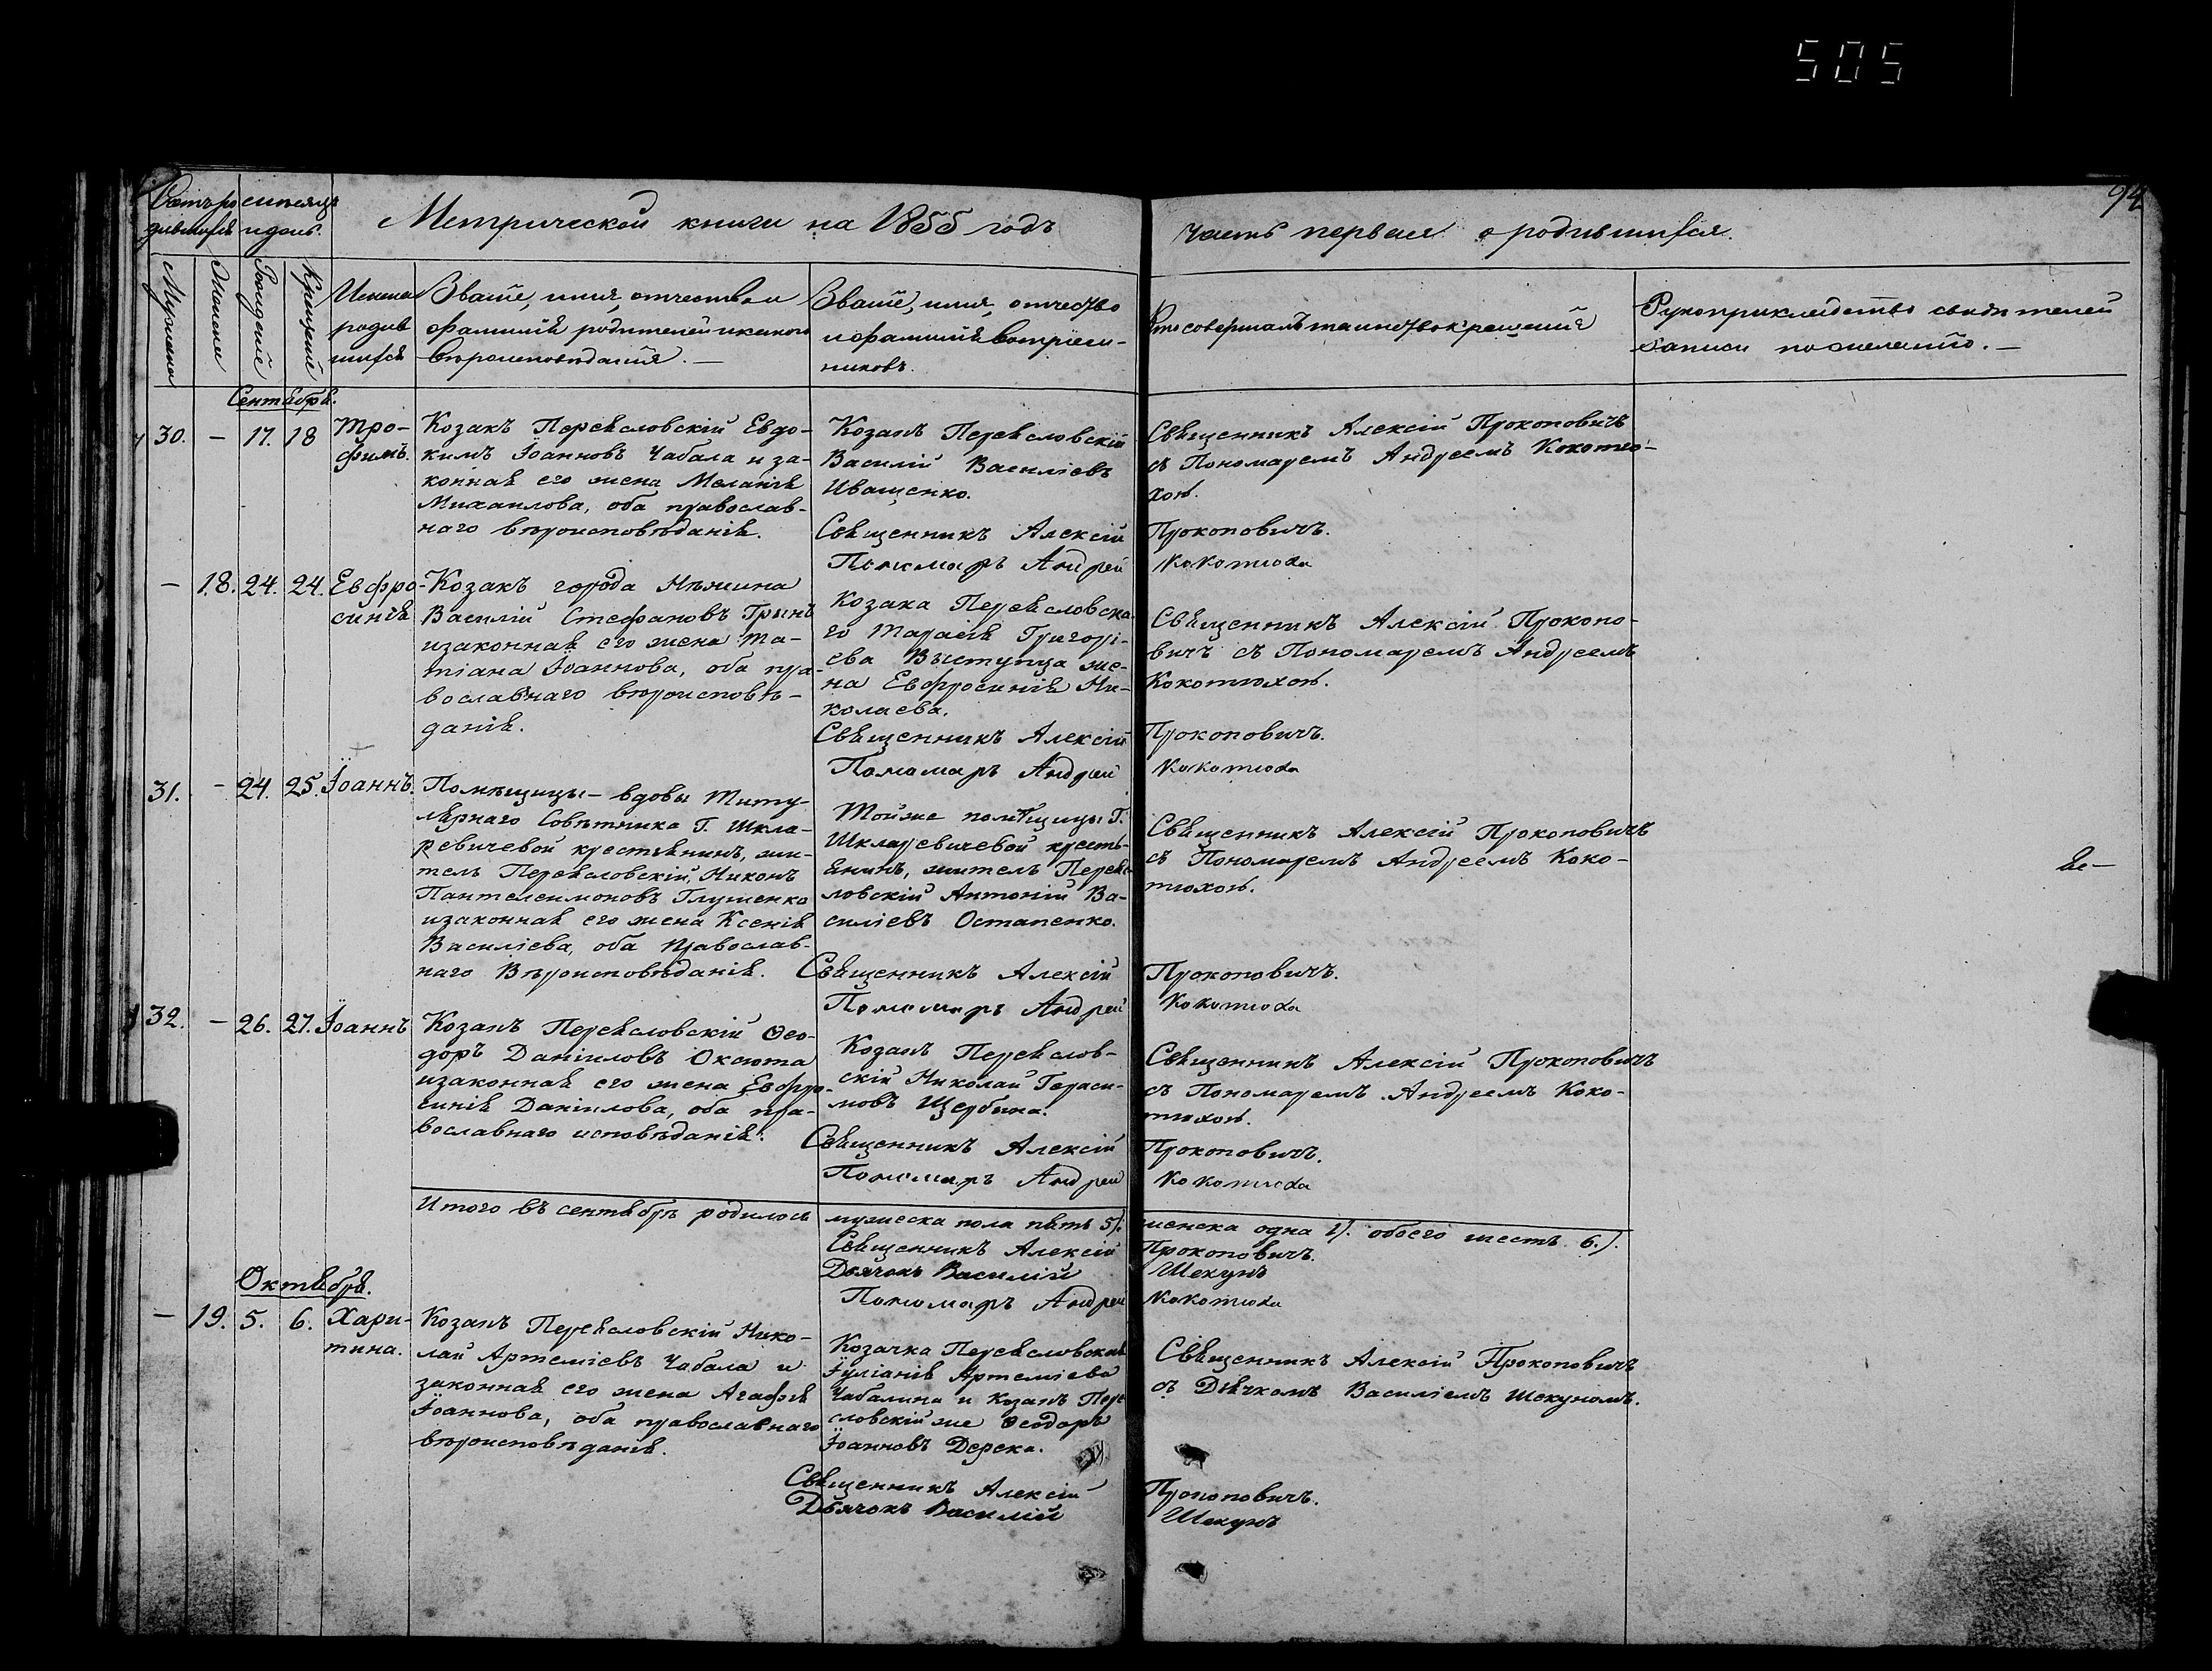 505
94
Метрической книги на 1855 годъ
часть первая о родившихся.
Счетъ ро
дившихся
мѣсяцъ
и день.
Мужеска
Женска
Рожденіе
Крещеніе
Имена
родив
шихся
Званіе, имя, отчество и
фамилія родителей и какого
вѣроисповѣданія. —
Званіе, имя, отчество
и фамилія воспріем-
никовъ.
Кто совершалъ таинство крещенія
Рукоприкладство свидѣтелей
записи по желанію. —
Сентября.
30. — 17. 18 Тро-
фимъ.
Козакъ Переясловскій Евдо-
кимъ Іоанновъ Чабала и за-
конная его жена Меланія
Михаилова, оба православ-
наго вѣроисповѣданія.
Козакъ Переясловскій
Василій Василіевъ
Иващенко.
Священникъ Алексій Прокоповичъ
съ Пономаремъ Андреемъ Кокотю-
хою.
Священникъ Алексій Прокоповичъ.
Пономарь Андрей Кокотюха
— 18. 24. 24. Евфро-
синія
Козакъ города Нѣжина
Василій Стефановъ Гринь
и законная его жена Та-
тіана Іоаннова, оба пра-
вославнаго вѣроисповѣ-
данія.
Козака Переясловска-
го Тарасія Григорі-
ева Выступца же-
на Евфросинія Ни-
колаева.
Священникъ Алексій Прокопо-
вичъ съ Пономаремъ Андреемъ
Кокотюхою.
Священникъ Алексій Прокоповичъ.
Пономарь Андрей Кокотюха
31. — 24. 25. Іоаннъ.
Помѣщицы – вдовы Титу-
лярнаго Совѣтника Г. Шкля-
ревичевой крестьянинъ, жи-
тель Переясловскій, Никонъ
Пантелеимоновъ Глущенко
и законная его жена Ксенія
Василіева, оба Православ-
наго Вѣроисповѣданія.
Тойже помѣщицы Г.
Шкляревичевой кресть-
янинъ, житель Переяс-
ловскій Антоній Ва-
силіевъ Остапенко.
Священникъ Алексій Прокоповичъ
съ Пономаремъ Андреемъ Коко-
тюхою.
Священникъ Алексій Прокоповичъ.
Пономарь Андрей Кокотюха
32. — 26. 27. Іоаннъ
Козакъ Переясловскій Ѳео-
доръ Даніиловъ Оксюта
и законная его жена Евфро-
синія Даніилова, оба пра-
вославнаго исповѣданія.
Козакъ Переяслов-
скій Николай Гераси-
мовъ Щербина.
Священникъ Алексій Прокоповичъ
съ Пономаремъ Андреемъ Коко-
тюхою.
Священникъ Алексій Прокоповичъ.
Пономарь Андрей Кокотюха
Итого въ сентябрѣ родилось мужеска пола пять 5). женска одна 1). обоего шесть 6.).
Священникъ Алексій Прокоповичъ.
Дьячокъ Василій Шекунъ
Пономарь Андрей Кокотюха
Октября.
— 19. 5. 6. Хари-
тина.
Козакъ Переясловскій Нико-
лай Артеміевъ Чабала и
законная его жена Агафія
Іоаннова, оба православнаго
вѣроисповѣданія.
Козачка Переясловская
Іуліанія Артеміева
Чабалина и Козакъ Перея
словскій же Ѳеодоръ
Іоанновъ Дерека.
Священникъ Алексій Прокоповичъ
съ Дьячкомъ Василіемъ Шекуномъ.
Священникъ Алексій Прокоповичъ.
Дьячокъ Василій Шекунъ